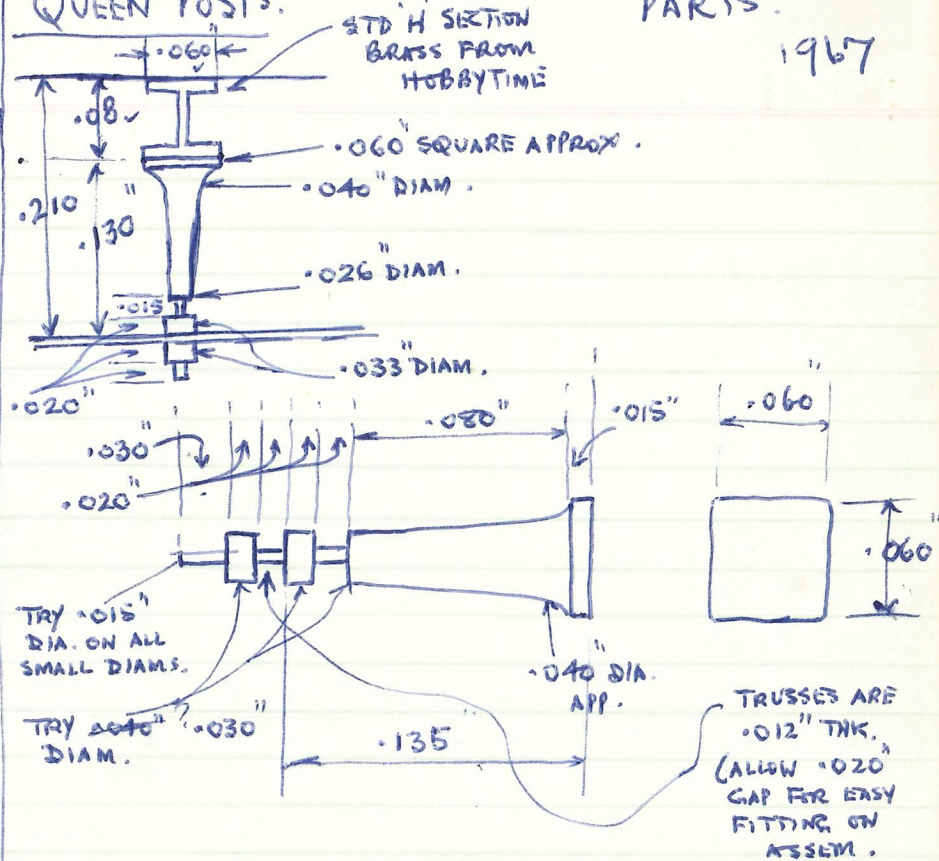 QUEEN POSTS.
PARTS.
1967
STD 'H' SECTION
BRASS FROM
HOBBYTIME
.060"
.08
.210"
.130"
.060" SQUARE APPROX.
.040" DIAM.
.026" DIAM.
.015
.033" DIAM.
.020"
.030"
.020"
.080"
.015"
.060"
.060"
TRY .015"
DIA. ON ALL
SMALL DIAMS.
TRY .040" ? .030"
DIAM.
.040" DIA.
APP.
.135"
TRUSSES ARE
.012" THK.
(ALLOW .020"
GAP FOR EASY
FITTING ON
ASSEM.